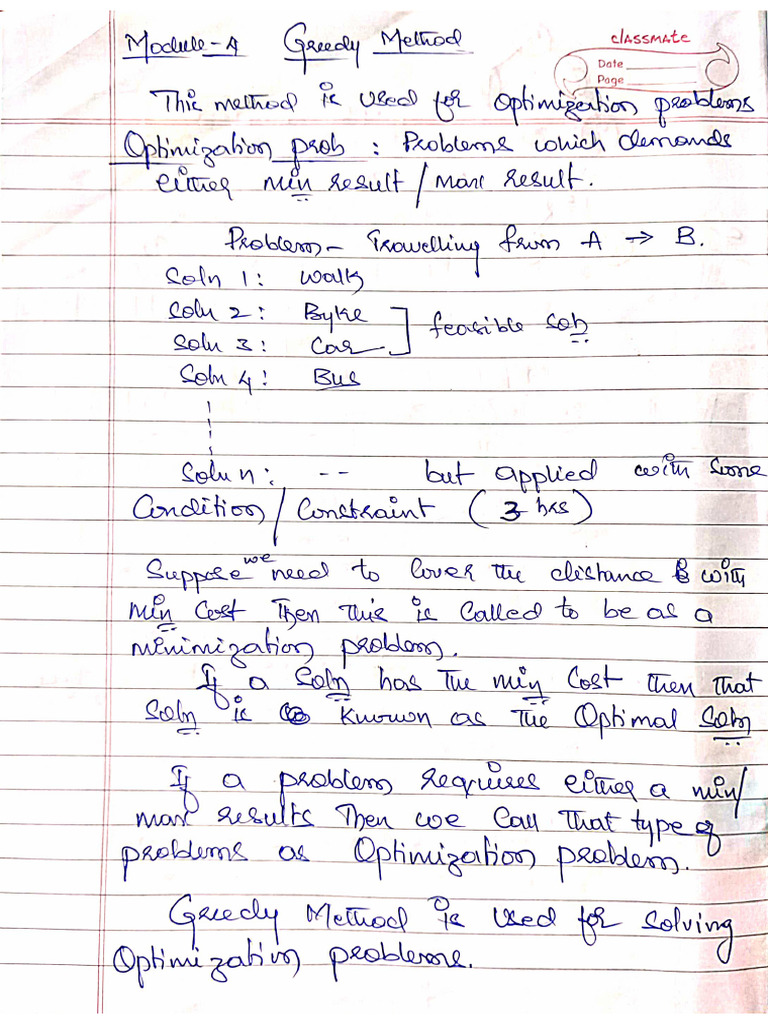 Module-4 Greedy Method
classmate
Date
Page
This method is used for Optimization problems
Optimization prob : Problems which demands
either min result/max result.
Problem - Travelling from A → B.
Soln 1: Walk
Soln 2: Byke
Soln 3: Car
feasible soln
Soln 4: Bus
Soln n: -- but applied with some
Condition/Constraint (3 hrs)
Suppose we need to cover the distance with
min Cost Then this is called to be as a
minimization problem.
If a Soln has the min Cost then that
Soln is known as the Optimal Soln
If a problem requires either a min/
max results Then we call that type of
problems as Optimization problem.
Greedy Method is used for solving
Optimization problems.